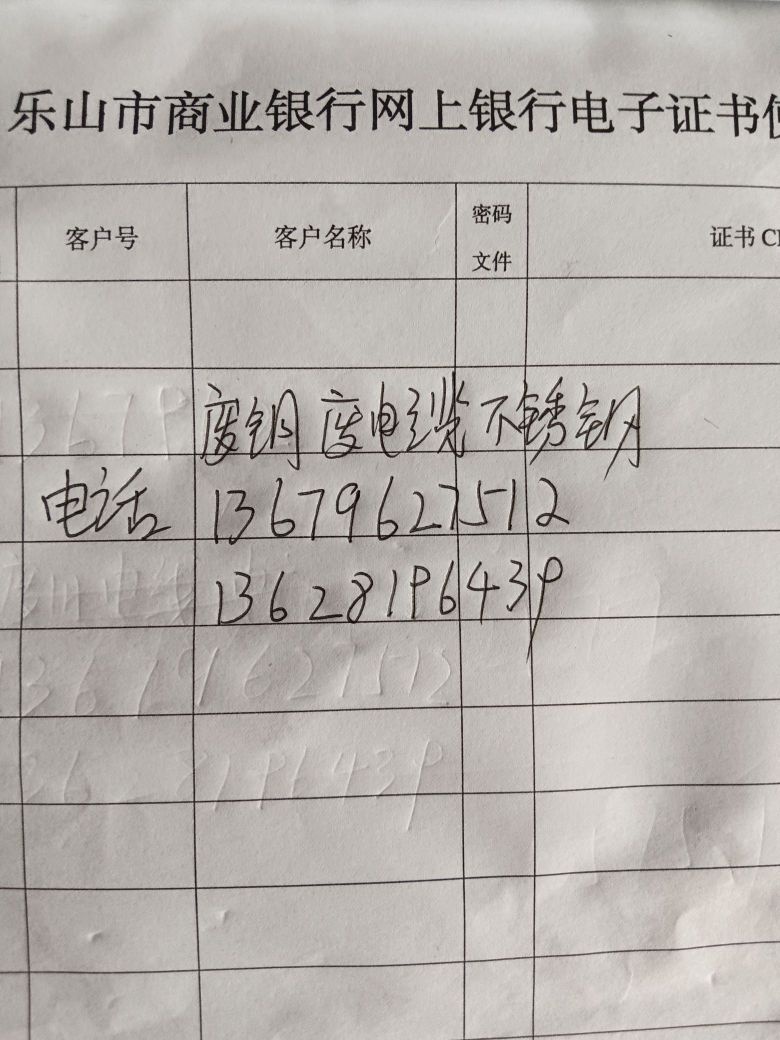 乐山市商业银行网上银行电子证书使
客户号 客户名称 密码文件 证书 C
废铜 废电缆 不锈钢
电话 13679627512
13628196439